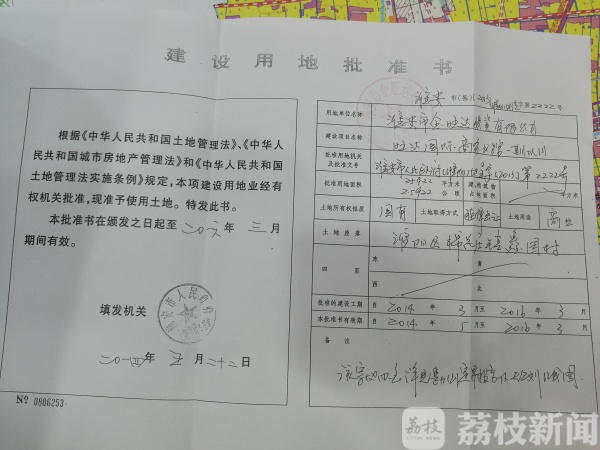 建设用地批准书
根据《中华人民共和国土地管理法》、《中华人
民共和国城市房地产管理法》和《中华人民共和国
土地管理法实施条例》规定，本项建设用地业经有
权机关批准，现准予使用土地。特发此书。
本批准书在颁发之日起至二〇一六年三月
期间有效。
填发机关
市人民政府
二〇一四年五月二十二日
Nº 0806253
淮安市(县)[2013] 字第2222号
用地单位名称 淮安市金 置业有限公司
建设项目名称 国际商
批准用地机关
及批准文号 淮安市人民政府 [2013]第2222号
批准用地面积 25922 平方米 建、构筑物占地面积 平方米
土地所有权性质 国有 土地取得方式 出让 土地用途 商业
土地座落
四至 东 南
西 北
批准的建设工期 自2014年3月至2016年3月
本批准书有效期 自2014年5月至2016年3月
备注
该宗地四至详见
荔枝
荔枝新闻